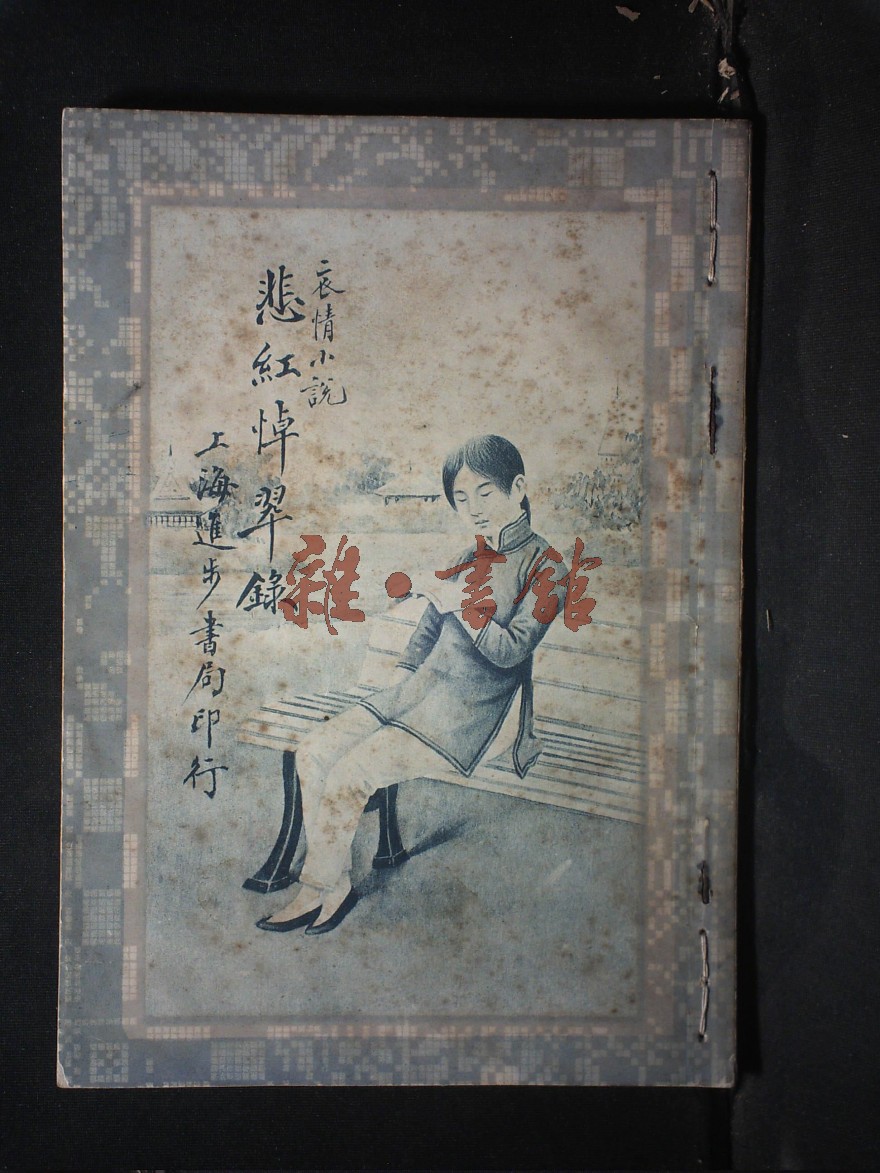 哀情小說
悲紅悼翠錄
上海進步書局印行
雜·書館